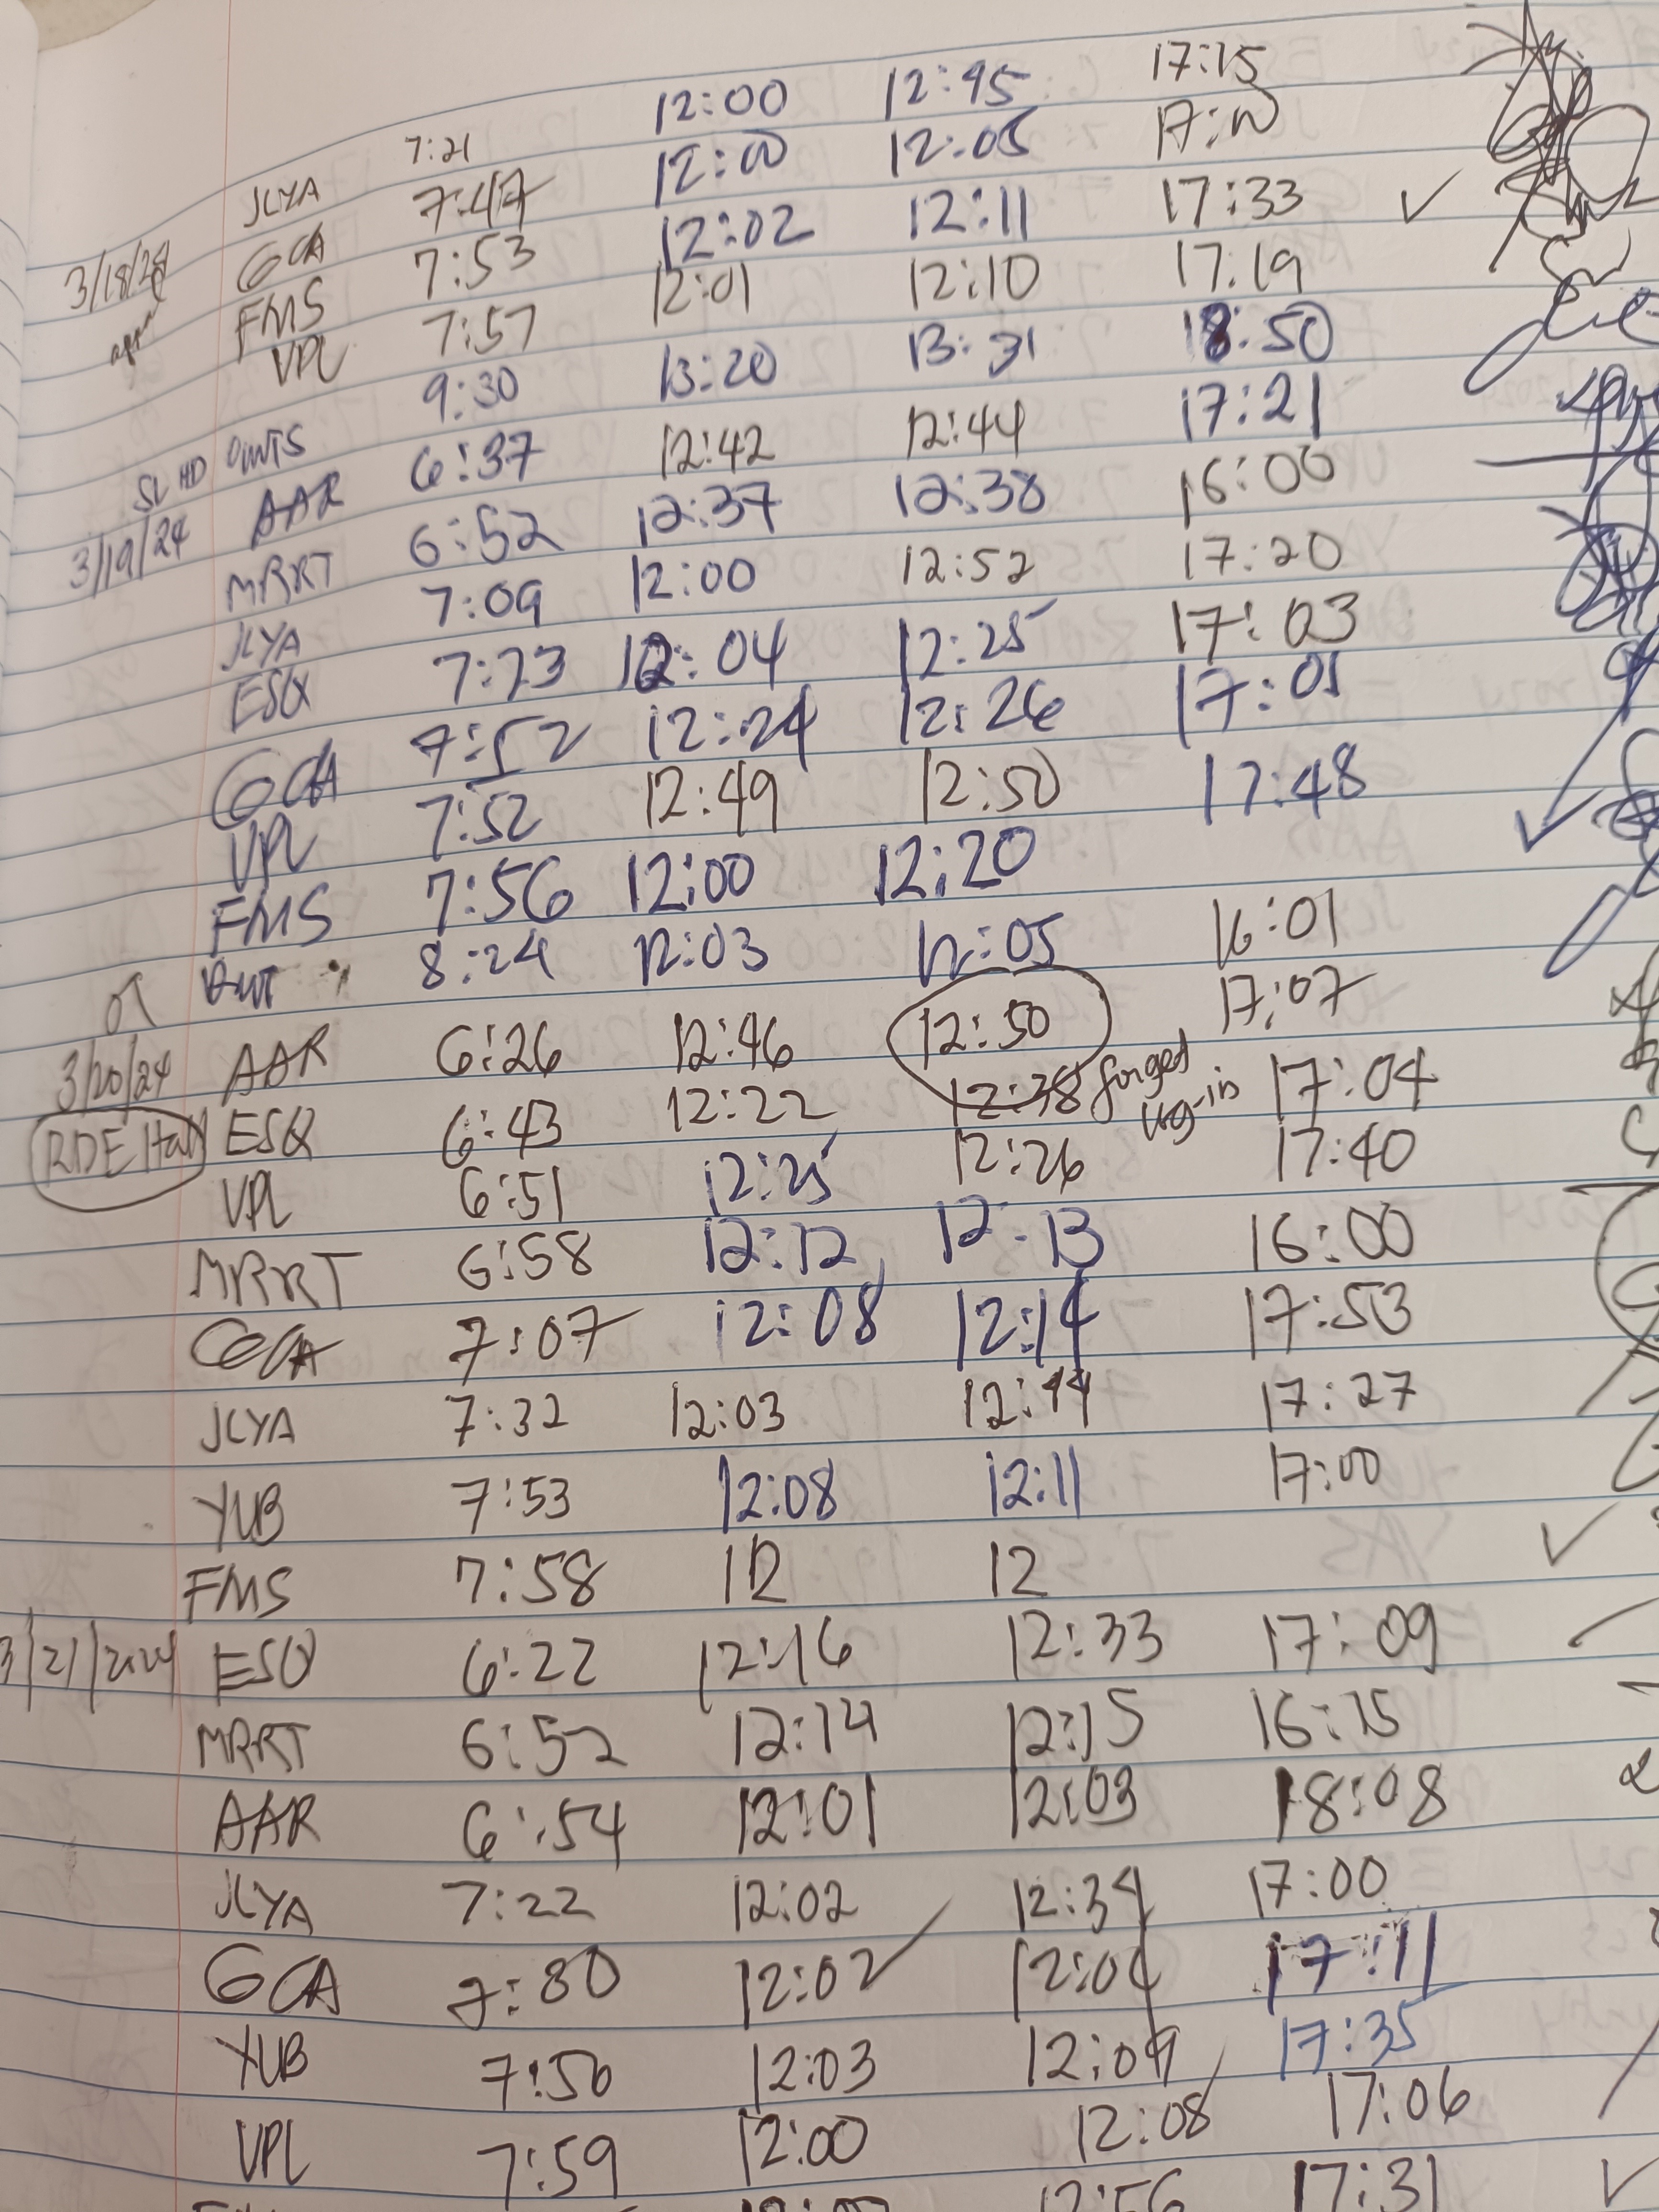 3/18/24 JLYA 7:21 12:00 12:45 17:15
GCA 7:47 12:00 12:05 17:00
FMS 7:53 12:02 12:11 17:33
VPL 7:57 12:01 12:10 17:19
SL HD 9:30 13:20 13:31 18:50
3/19/24 AAR 6:37 12:42 12:44 17:21
MRRT 6:52 12:37 12:38 16:00
JLYA 7:09 12:00 12:52 17:20
ESQ 7:23 12:04 12:25 17:03
GCA 7:52 12:24 12:26 17:01
VPL 7:52 12:49 12:50 17:48
FMS 7:56 12:00 12:20
8:24 12:03 12:05 16:01
3/20/24 AAR 6:26 12:46 12:50 17:07
RDE Hall ESQ 6:43 12:22 12:38 forged log-in 17:04
VPL 6:51 12:25 12:26 17:40
MRRT 6:58 12:12 12:13 16:00
GCA 7:07 12:08 12:14 17:53
JLYA 7:32 12:03 12:44 17:27
YUB 7:53 12:08 12:11 17:00
FMS 7:58 12 12
3/21/2024 ESQ 6:22 12:16 12:33 17:09
MRRT 6:52 12:14 12:15 16:15
AAR 6:54 12:01 12:03 18:08
JLYA 7:22 12:02 12:34 17:00
GCA 7:30 12:02 12:04 17:11
YUB 7:50 12:03 12:09 17:35
VPL 7:59 12:00 12:08 17:06
12:56 17:31